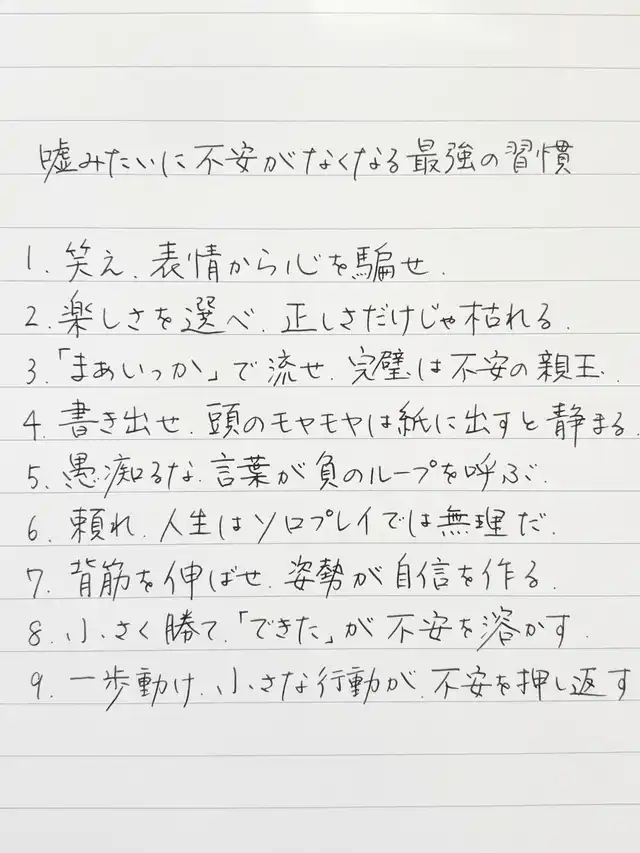 嘘みたいに不安がなくなる最強の習慣
1. 笑え.表情から心を騙せ.
2. 楽しさを選べ.正しさだけじゃ枯れる.
3.「まあいっか」で流せ.完璧は不安の親玉.
4. 書き出せ.頭のモヤモヤは紙に出すと静まる.
5. 愚痴るな.言葉が負のループを呼ぶ.
6. 頼れ.人生はソロプレイでは無理だ.
7. 背筋を伸ばせ.姿勢が自信を作る.
8. 小さく勝て.「できた」が不安を溶かす.
9. 一歩動け.小さな行動が、不安を押し返す